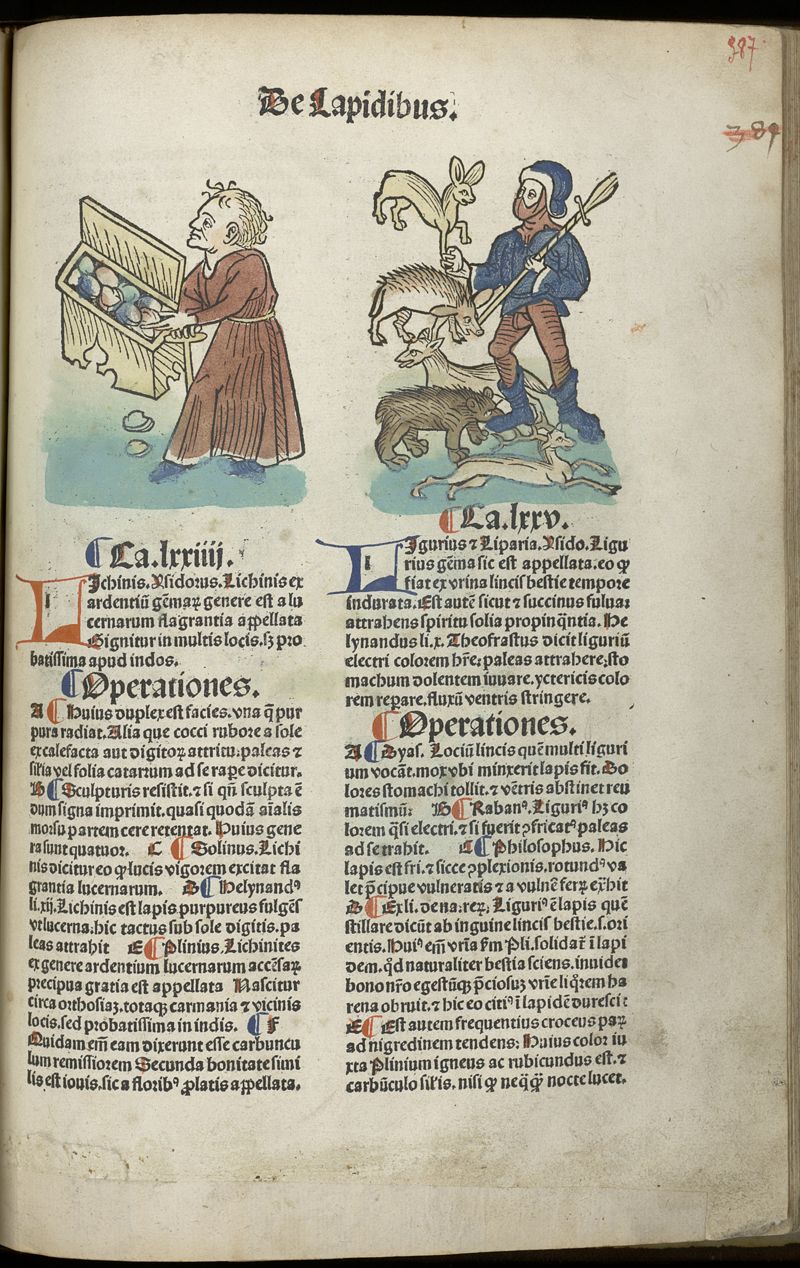 387
389
De Lapidibus.
Ca.lxxiiij.
Lichinis. Ysidorus. Lichinis ex
ardentiū gēmaꝝ genere est a lu
cernarum flagrantia appellata
Gignitur in multis locis. sꝫ pro
batissima apud indos.
Operationes.
A Huius duplex est facies. vna q̄ pur
pura radiat. Alia que cocci rubore a sole
excalefacta aut digitoꝝ attritu: paleas ⁊
filia vel folia catarum ad se rape dicitur.
B Sculpturis resistit. ⁊ si qn̄ sculpta ē
dum signa imprimit. quasi quodā aīalis
morsu partem cere retentat. Huius gene
ra sunt quatuor. C Solinus. Lichi
nis dicitur eo ꝙ lucis vigorem excitat fla
grantia lucernarum. D Helynandꝰ
li.xij. Lichinis est lapis purpureus fulgēs
vt lucerna: hic tactus sub sole digitis. pa
leas attrahit E Plinius. Lichinites
ex genere ardentium lucernarum accēsaꝝ
precipua gratia est appellata Nascitur
circa orthosiaꝫ. totaqꝫ carmania ⁊ vicinis
locis. sed probatissima in indis. F
Quidam em̄ eam dixerunt esse carbuncu
lum remissiorem Secunda bonitate simi
lis est iouis. sic a floribꝰ ꝓlatis appellata.
Ca.lxxv.
Ligurius ⁊ Liparia. Ysido. Ligu
rius gēma sic est appellata. eo ꝙ
fiat ex vrina lincis bestie tempore
indurata. Est autē sicut ⁊ succinus fulua:
attrahens spiritu folia propinq̄ntia. He
lynandus li.x. Theofrastus dicit liguriū
electri colorem hr̄e: paleas attrahere: sto
machum dolentem iuuare. yctericis colo
rem reꝑare. fluxū ventris stringere.
Operationes.
A Dyas. Lociū lincis quē multi liguri
um vocāt. mox vbi minxerit lapis fit. Do
lores stomachi tollit. ⁊ vētris abstinet reu
matismū: B Rabanꝰ. Liguriꝰ hꝫ co
lorem q̄si electri. ⁊ si fuerit ꝯfricatꝰ paleas
ad se trahit. C Philosophus. Hic
lapis est fri. ⁊ sicce ꝯplexionis. rotundꝰ va
let p̄cipue vulneratis ⁊ a vulnē ferꝝ ex̄hit
D Ex li. de na. reꝝ: Liguriꝰ ē lapis quē
stillare dicūt ab inguine lincis bestie. s. ori
entis. Huiꝰ em̄ vrīa fm Pli. solidat̄ ī lapi
dem. qd̄ naturaliter bestia sciens. inuidet
bono nr̄o egestūqꝫ p̄ciosuꝫ vrīe liq̄rem ha
rena obruit. ⁊ hic eo citiꝰ ī lapidē durescit
E Est autem frequentius croceus paꝝ
ad nigredinem tendens: Huius color iu
xta Plinium igneus ac rubicundus est. ⁊
carbūculo sil̄is. nisi ꝙ neq̄ꝙ̄ nocte lucet.